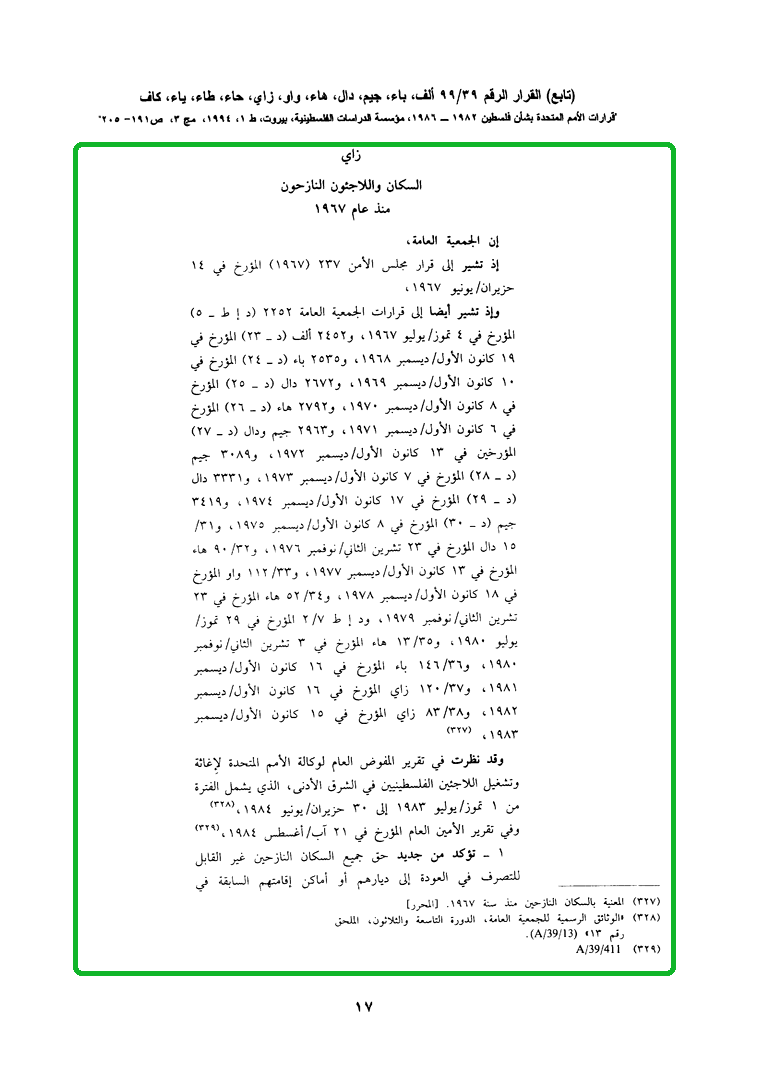 (تابع) القرار الرقم ٩٩/٣٩ ألف، باء، جيم، دال، هاء، واو، زاي، حاء، طاء، ياء، كاف
"قرارات الأمم المتحدة بشأن فلسطين ١٩٨٢ ــ ١٩٨٦، مؤسسة الدراسات الفلسطينية، بيروت، ط ١، ١٩٩٤، مج ٣، ص١٩١- ٢٠٥"
زاي
السكان واللاجئون النازحون
منذ عام ١٩٦٧
إن الجمعية العامة،
إذ تشير إلى قرار مجلس الأمن ٢٣٧ (١٩٦٧) المؤرخ في ١٤
حزيران/يونيو ١٩٦٧،
وإذ تشير أيضا إلى قرارات الجمعية العامة ٢٢٥٢ (د إ ط ــ ٥)
المؤرخ في ٤ تموز/يوليو ١٩٦٧، و٢٤٥٢ ألف (د ــ ٢٣) المؤرخ في
١٩ كانون الأول/ديسمبر ١٩٦٨، و٢٥٣٥ باء (د ــ ٢٤) المؤرخ في
١٠ كانون الأول/ديسمبر ١٩٦٩، و٢٦٧٢ دال (د ــ ٢٥) المؤرخ
في ٨ كانون الأول/ديسمبر ١٩٧٠، و٢٧٩٢ هاء (د ــ ٢٦) المؤرخ
في ٦ كانون الأول/ديسمبر ١٩٧١، و٢٩٦٣ جيم ودال (د ــ ٢٧)
المؤرخين في ١٣ كانون الأول/ديسمبر ١٩٧٢، و٣٠٨٩ جيم
(د ــ ٢٨) المؤرخ في ٧ كانون الأول/ديسمبر ١٩٧٣، و٣٣٣١ دال
(د ــ ٢٩) المؤرخ في ١٧ كانون الأول/ديسمبر ١٩٧٤، و٣٤١٩
جيم (د ــ ٣٠) المؤرخ في ٨ كانون الأول/ديسمبر ١٩٧٥، و٣١/
١٥ دال المؤرخ في ٢٣ تشرين الثاني/نوفمبر ١٩٧٦، و٩٠/٣٢ هاء
المؤرخ في ١٣ كانون الأول/ديسمبر ١٩٧٧، و١١٢/٣٣ واو المؤرخ
في ١٨ كانون الأول/ديسمبر ١٩٧٨، و٥٢/٣٤ هاء المؤرخ في ٢٣
تشرين الثاني/نوفمبر ١٩٧٩، ود إ ط ٢/٧ المؤرخ في ٢٩ تموز/
يوليو ١٩٨٠، و١٣/٣٥ هاء المؤرخ في ٣ تشرين الثاني/نوفمبر
١٩٨٠، و١٤٦/٣٦ باء المؤرخ في ١٦ كانون الأول/ديسمبر
١٩٨١، و١٢٠/٣٧ زاي المؤرخ في ١٦ كانون الأول/ديسمبر
١٩٨٢، و٨٣/٣٨ زاي المؤرخ في ١٥ كانون الأول/ديسمبر
١٩٨٣، (٣٢٧)
وقد نظرت في تقرير المفوض العام لوكالة الأمم المتحدة لإغاثة
وتشغيل اللاجئين الفلسطينيين في الشرق الأدنى، الذي يشمل الفترة
من ١ تموز/يوليو ١٩٨٣ إلى ٣٠ حزيران/يونيو ١٩٨٤، (٣٢٨)
وفي تقرير الأمين العام المؤرخ في ٢١ آب/أغسطس ١٩٨٤، (٣٢٩)
١ ــ تؤكد من جديد حق جميع السكان النازحين غير القابل
للتصرف في العودة إلى ديارهم أو أماكن إقامتهم السابقة في
(٣٢٧) المعنية بالسكان النازحين منذ سنة ١٩٦٧. [المحرر]
(٣٢٨) «الوثائق الرسمية للجمعية العامة، الدورة التاسعة والثلاثون، الملحق
رقم ١٣» (A/39/13).
(٣٢٩) A/39/411
١٧